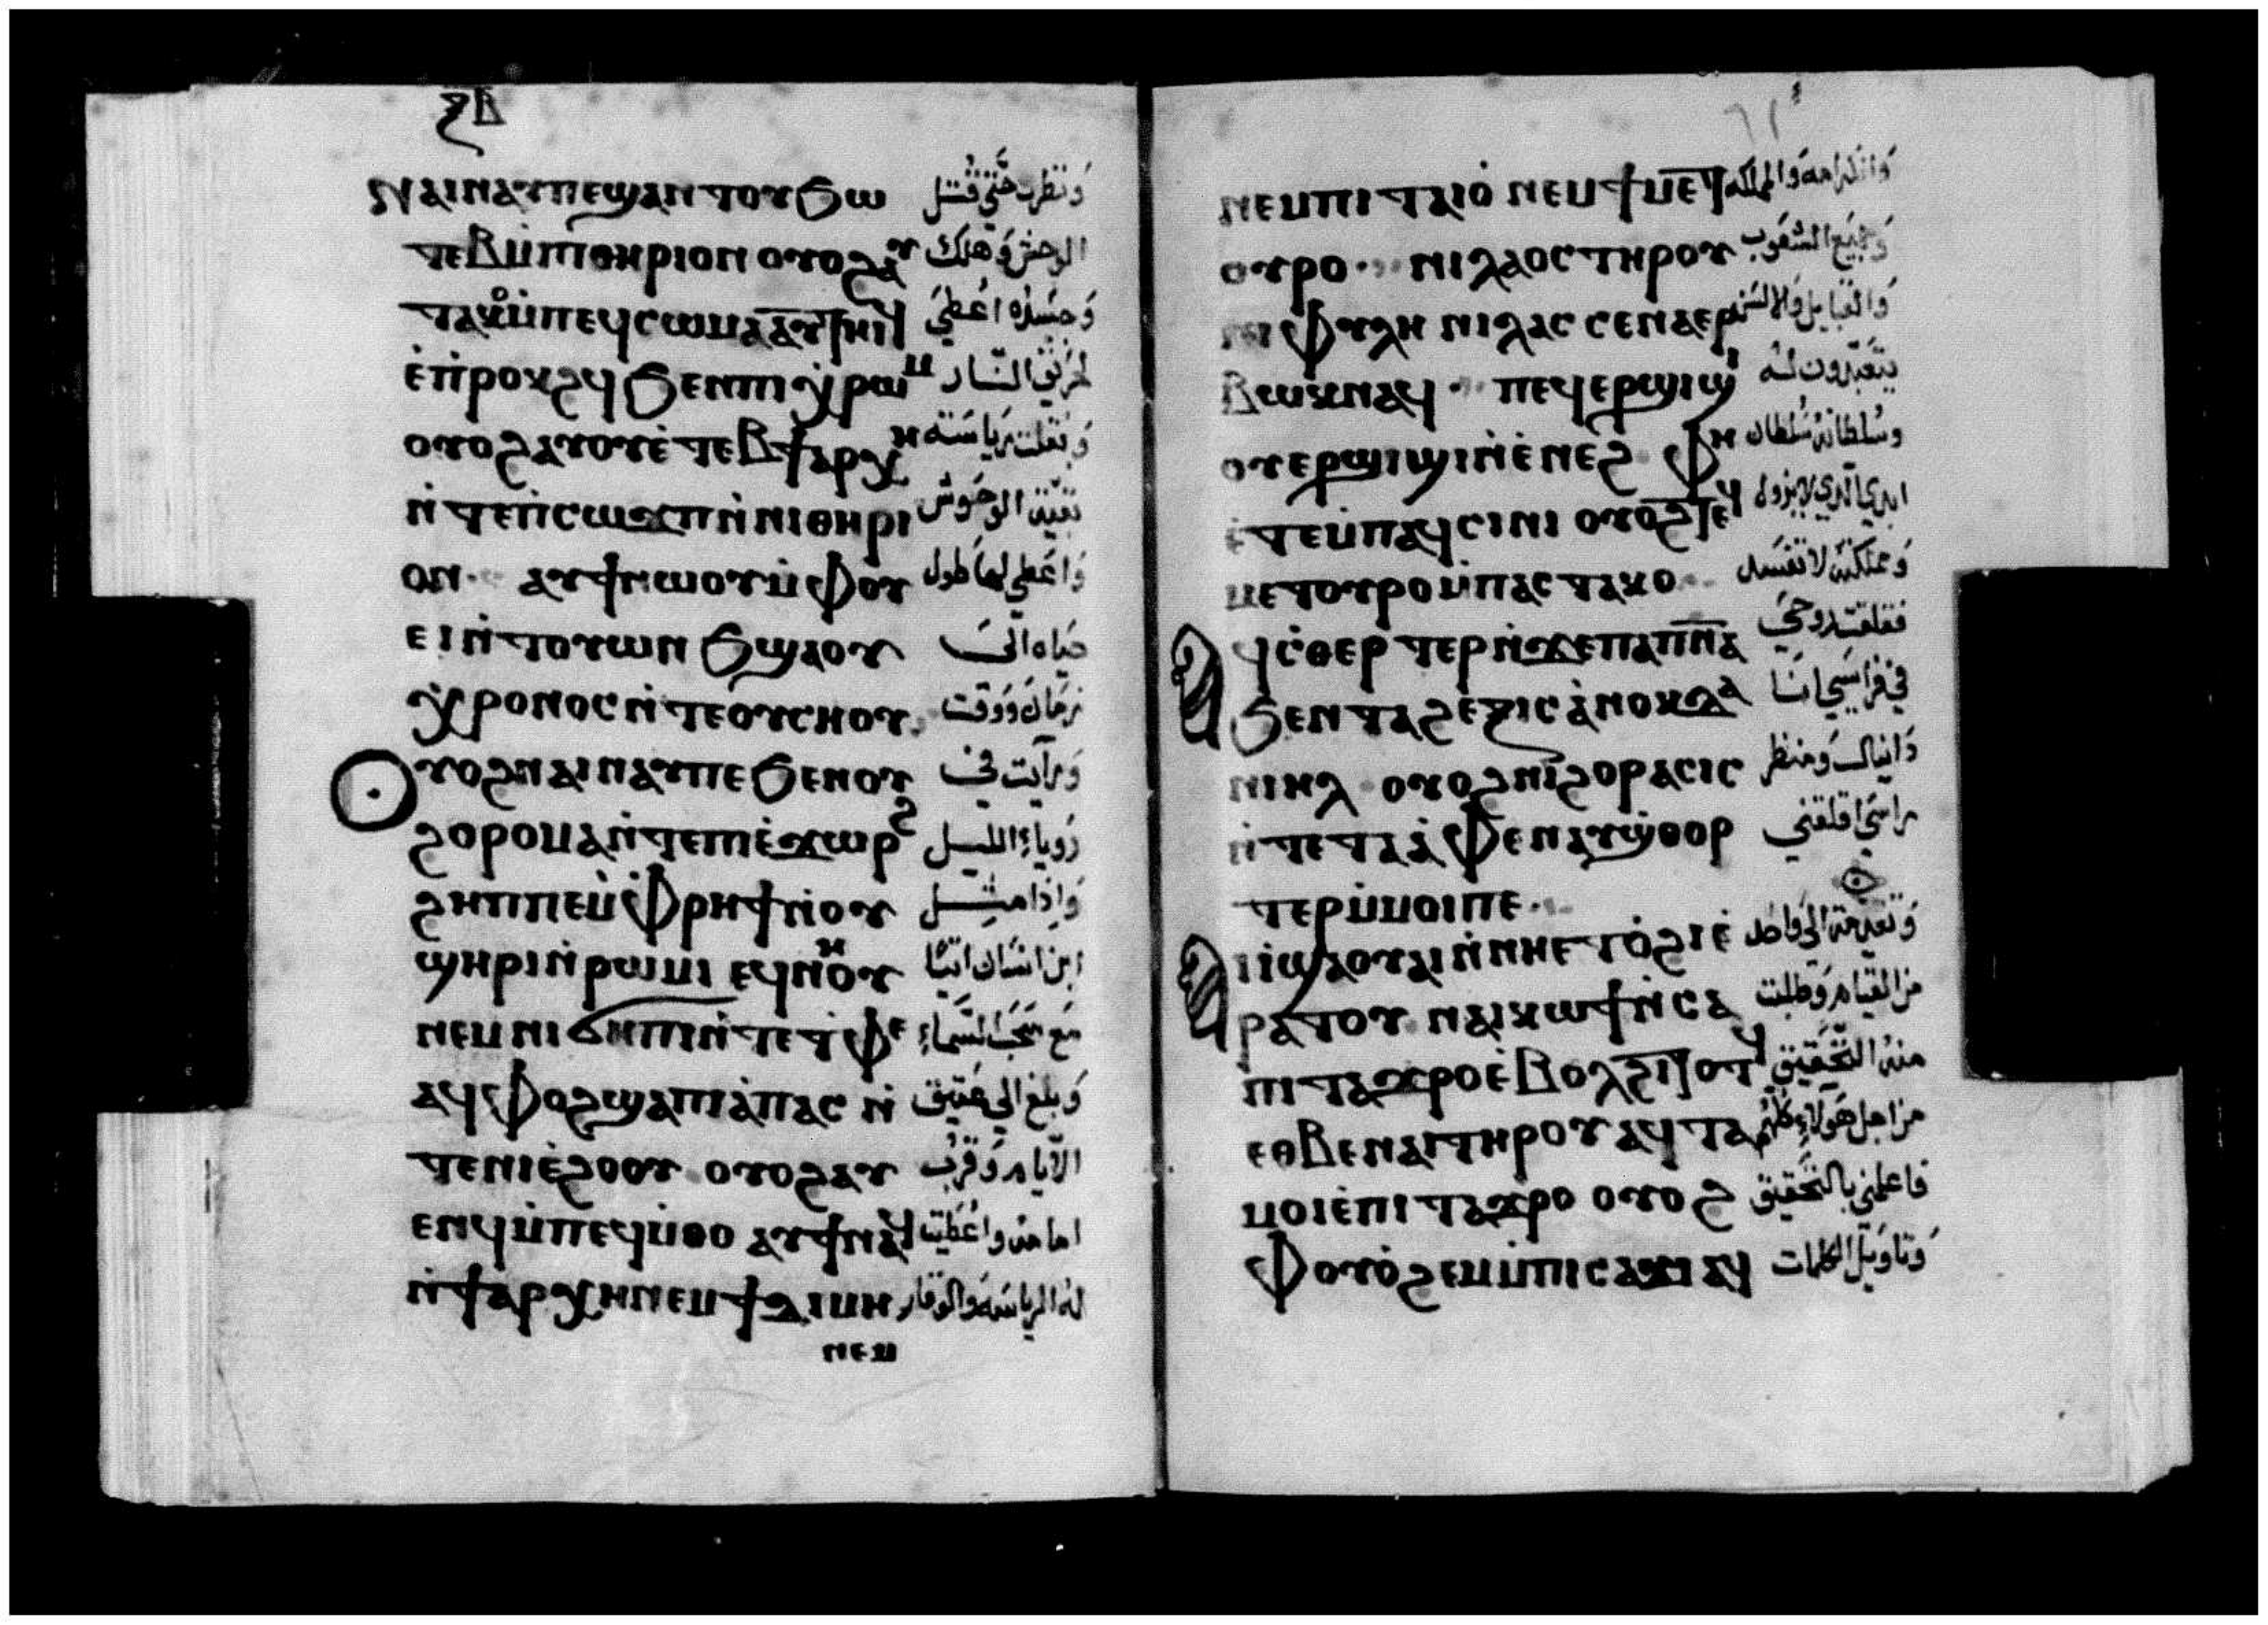 ⲝⲃ
ⲛⲁⲓⲛⲁⲩⲡⲉϣⲁⲛⲧⲟⲩϧⲱ وَنظرت حَتّي قُتل
ⲧⲉⲃⲙ̀ⲡⲓⲑⲏⲣⲓⲟⲛ ⲟⲩⲟϩⲁⲩ الوحش وَهلك
ⲧⲁⲕⲟⲙ̀ⲡⲉϥⲥⲱⲙⲁ ⲁⲩⲧⲏⲓϥ وَجسَده اعُطيَ
ⲉ̀ⲡ̀ⲣⲟⲕϩϥ ϧⲉⲛⲡⲓⲭ̀ⲣⲱⲙ لحَريق النّار
ⲟⲩⲟϩ ⲁⲩⲟⲩⲉ̀ⲧⲉⲃϯⲁⲣⲭⲏ وَنقلت رياسَة
ⲛ̀ⲧⲉⲡ̀ⲥⲱϫⲡ ⲛ̀ⲛⲓⲑⲏⲣⲓ بَقيّة الوحُوش
ⲟⲛ ⲁⲩϯⲛⲱⲟⲩ ⲙ̀ⲫⲟⲩ وَاعَطي لها طول
ⲉⲓ ⲛ̀ⲧⲟⲩⲱⲛϧ ϣⲁⲟⲩ حيَاه الَي
ⲭ̀ⲣⲟⲛⲟⲥ ⲛ̀ⲧⲉⲟⲩⲥⲏⲟⲩ زمَان وَوقت
ⲟⲩⲟϩ ⲛⲁⲓⲛⲁⲩⲡⲉ ϧⲉⲛⲟⲩ وَرايت في
ϩⲟⲣⲟⲙⲁ ⲛ̀ⲧⲉⲡⲓⲉ̀ϫⲱⲣϩ رُوياء الليل
ϩⲏⲡⲡⲉ ⲙ̀ⲫⲣⲏϯ ⲛ̀ⲟⲩ وَاِذا مثل
ϣⲏⲣⲓ ⲛ̀ⲣⲱⲙⲓ ⲉϥⲛⲏⲟⲩ ابن انسَان اتيًا
ⲛⲉⲙⲛⲓϭⲏⲡⲓ ⲛ̀ⲧⲉⲧ̀ⲫⲉ مَع سحَب السَّماء
ⲁϥⲫⲟϩ ϣⲁⲡⲓⲁ̀ⲡⲁⲥ ⲛ̀ وَبلغ الي عَتيق
ⲧⲉⲛⲓⲉ̀ϩⲟⲟⲩ ⲟⲩⲟϩ ⲁⲩ الاَيام وَقربُ
ⲉⲛϥ ⲙ̀ⲡⲉϥⲙ̀ⲑⲟ ⲁⲩϯⲛⲁϥ امامه واُعُطيت
ⲛ̀ϯⲁⲣⲭⲏ ⲛⲉⲙϯϫⲓⲙⲏ لهُ الرياسَة وَالوقار
ⲛⲉⲙ
ⲛⲉⲙⲡⲓⲧⲁⲓⲟ̀ ⲛⲉⲙϯⲙⲉⲧ وَالكرامة وَالمملكه
ⲟⲩⲣⲟ ⲛⲓⲗⲁⲟⲥ ⲧⲏⲣⲟⲩ وَجميَع الشعُوب
ⲛⲓⲫⲩⲗⲏ ⲛⲓⲗⲁⲥ ⲥⲉⲛⲁⲉⲣ وَالقبَايل وَالالسَنه
ⲃⲱⲕ ⲛⲁϥ ⲡⲉϥⲉⲣϣⲓϣⲓ يتعَبّدون لهُ
ⲟⲩⲉⲣϣⲓϣⲓ ⲛ̀ⲉ̀ⲛⲉϩ ⲫⲏ وسُلطانه سُلطان
ⲉ̀ⲧⲉⲙ̀ⲡⲁϥⲥⲓⲛⲓ ⲟⲩⲟϩ ⲧⲉϥ ابدي الّذي لا يزول
ⲙⲉⲧⲟⲩⲣⲟ ⲙ̀ⲡⲁⲥⲧⲁⲕⲟ وَمملكته لا تفسَد
ⲁϥⲥ̀ⲑⲉⲣⲧⲉⲣ ⲛ̀ϫⲉⲡⲁⲡⲛ̅ⲁ̅ فقلقت روحيَ
ϧⲉⲛⲧⲁϩⲉⲝⲓⲥ ⲁ̀ⲛⲟⲕ ⲇⲁ في فراسَي انَا
ⲛⲓⲏⲗ ⲟⲩⲟϩ ⲛⲓϩⲟⲣⲁⲥⲓⲥ دَانيال وَمنظر
ⲛ̀ⲧⲉⲧⲁⲁ̀ⲫⲉ ⲛⲁⲩϣ̀ⲑⲟⲣ راسَي اقلقني
ⲧⲉⲣ ⲙ̀ⲙⲟⲓⲡⲉ
ⲁⲓⲓ̀ ϣⲁⲟⲩⲁⲓ ⲛ̀ⲛⲏⲉⲧⲟ̀ϩⲓ ⲉ̀ وَتقدمت الي وَاحَد
ⲣⲁⲧⲟⲩ ⲛⲁⲓⲕⲱϯ ⲛ̀ⲥⲁ من القيام وَطلبت
ⲡⲓⲧⲁϫⲣⲟ ⲉ̀ⲃⲟⲗϩⲓⲧⲟⲧϥ منهُ التحَقيق
ⲉⲑⲃⲉⲛⲁⲓ ⲧⲏⲣⲟⲩ ⲁϥⲧⲁ من اجل هَولاء كلّهم
ⲙⲟⲓ ⲉ̀ⲡⲓⲧⲁϫⲣⲟ ⲟⲩⲟϩ فاعلمني بالتحَقيق
ⲫⲟⲩⲟ̀ϩⲉⲙ ⲙ̀ⲡⲓⲥⲁϫⲓ ⲁϥ وَتاويل الكلمات